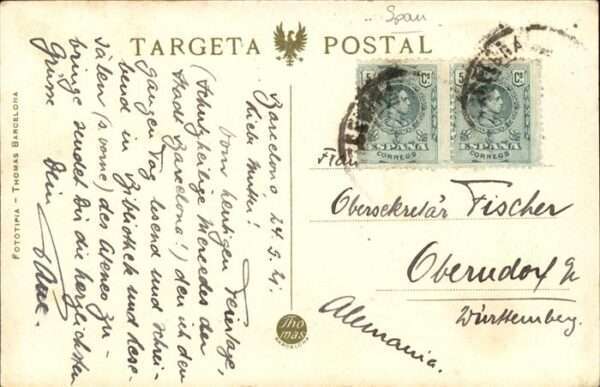 Span
TARGETA POSTAL
Barcelona 24.9.21.
Liebe Mutter!
Vom heutigen Feiertage,
(Schutzheilige Mercedes der
Stadt Barcelona!) den ich den
ganzen Tag lesend und schrei-
bend in Bibliothek und Lese-
sälen (s. vorne) des Ateneo zu-
bringe, sendet Dir die herzlichsten
Grüsse
Dein
FOTOTIPIA – THOMAS BARCELONA
Thomas
BARCELONA
5 Cs
ESPAÑA
CORREOS
5 Cs
ESPAÑA
CORREOS
Obersekretär Fischer
Oberndorf
Württemberg.
Alemania.